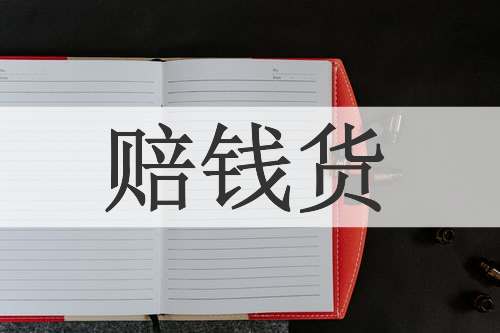 赔钱货